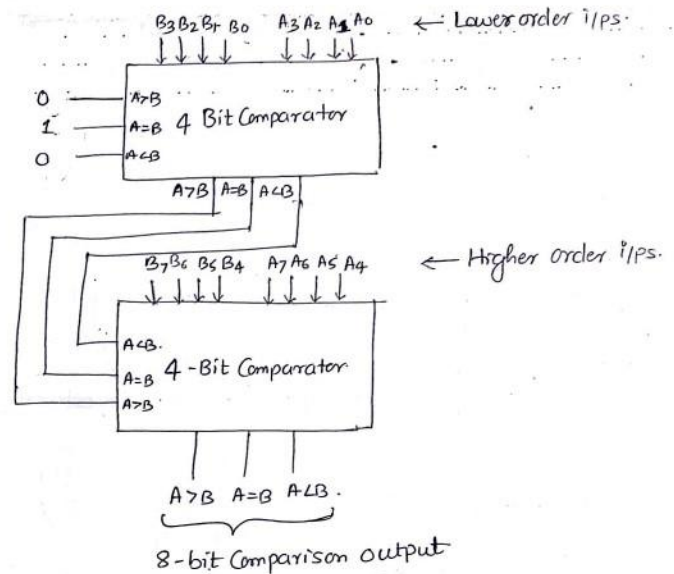 B3 B2 B1 B0 A3 A2 A1 A0 ← Lower order i/ps.
0 A>B
1 A=B 4 Bit Comparator
0 A<B
A>B A=B A<B
B7 B6 B5 B4 A7 A6 A5 A4 ← Higher order i/ps.
A<B.
A=B 4-Bit Comparator
A>B
A>B A=B A<B.
8-bit Comparison output